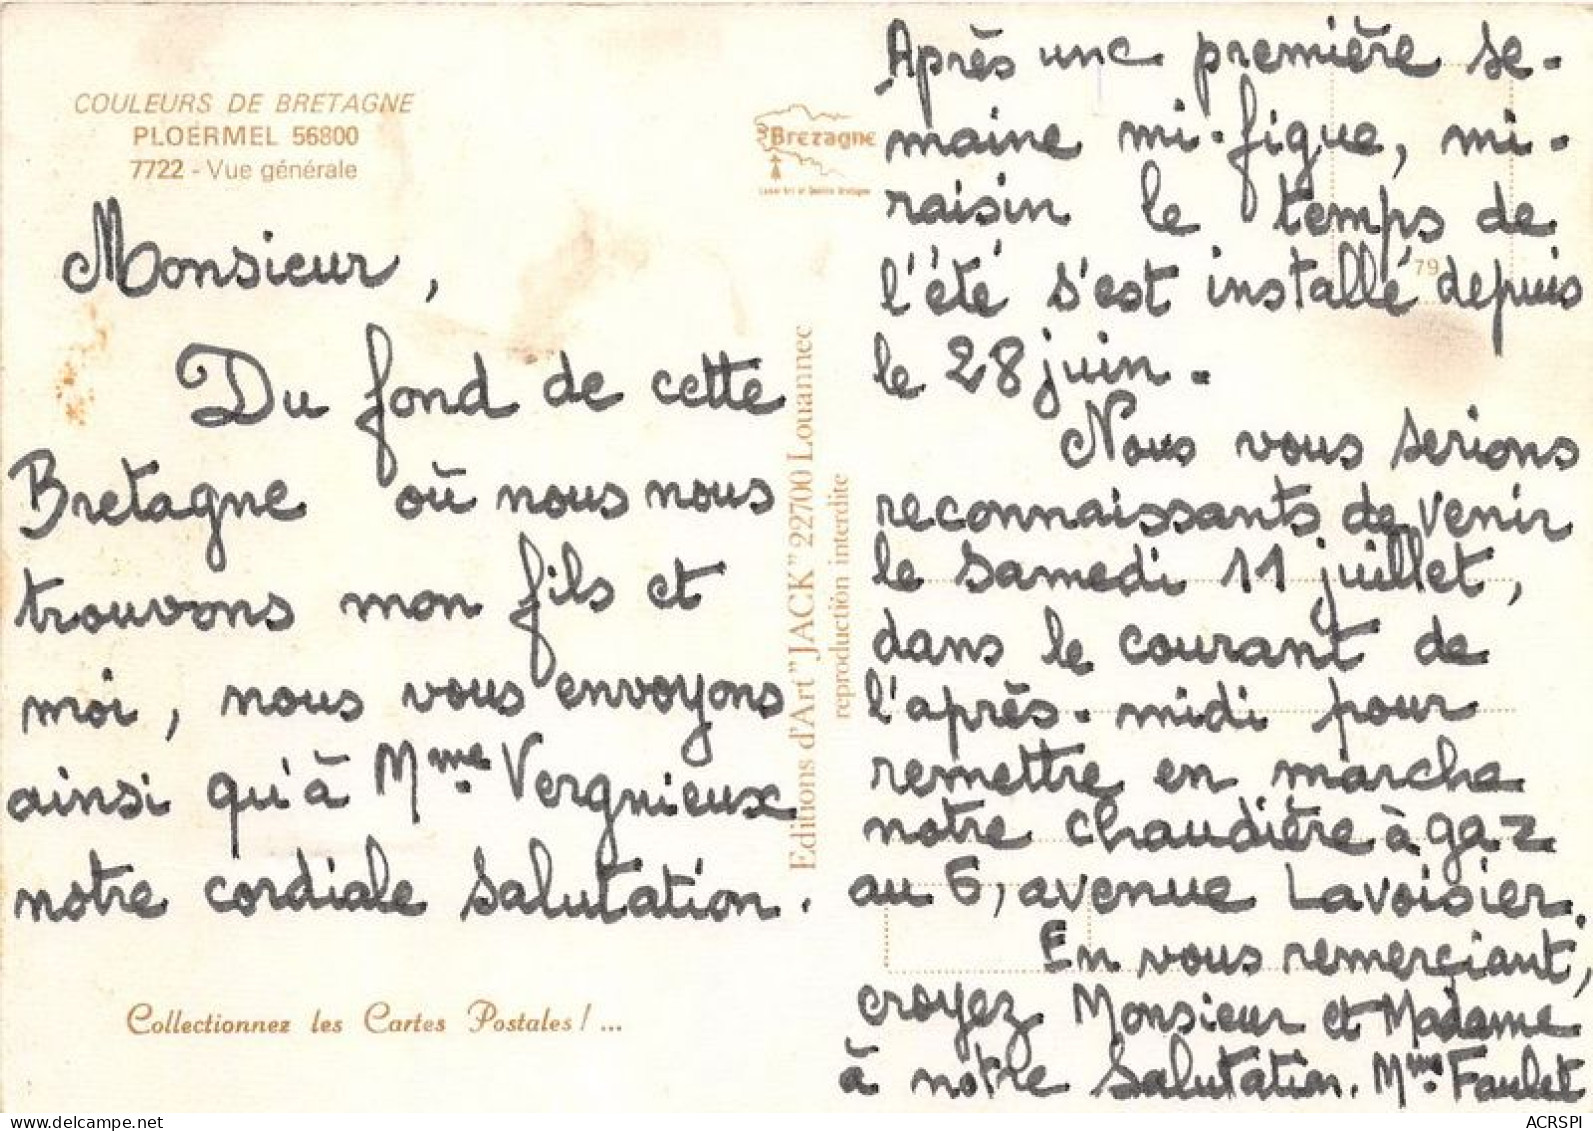 COULEURS DE BRETAGNE
PLOERMEL 56800
7722 - Vue générale
Bretagne
Monsieur,
Du fond de cette
Bretagne où nous nous
trouvons mon fils et
moi, nous vous envoyons
ainsi qu'à Mme Vergnieux
notre cordiale salutation.
Collectionnez les Cartes Postales ! ...
Editions d'Art "JACK" 22700 Louannec
reproduction interdite
Après une première se-
maine mi-figue, mi-
raisin le temps de
l'été s'est installé depuis
79
le 28 juin.
Nous vous serions
reconnaissants de venir
le samedi 11 juillet,
dans le courant de
l'après-midi pour
remettre en marche
notre chaudière à gaz
au 6, avenue Lavoisier.
En vous remerçiant,
croyez Monsieur et Madame
à notre salutation. Mme Faulet
ACRSPI